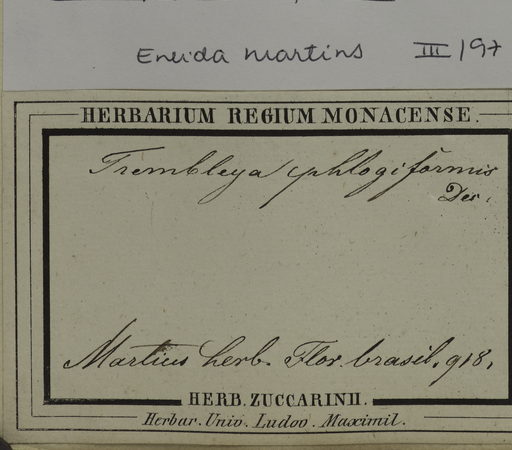 Eneida Martins III/97
HERBARIUM REGIUM MONACENSE.
Trembleya phlogiformis
Der.
Martius herb. Flor. brasil. 918.
HERB. ZUCCARINII.
Herbar. Univ. Ludov. Maximil.